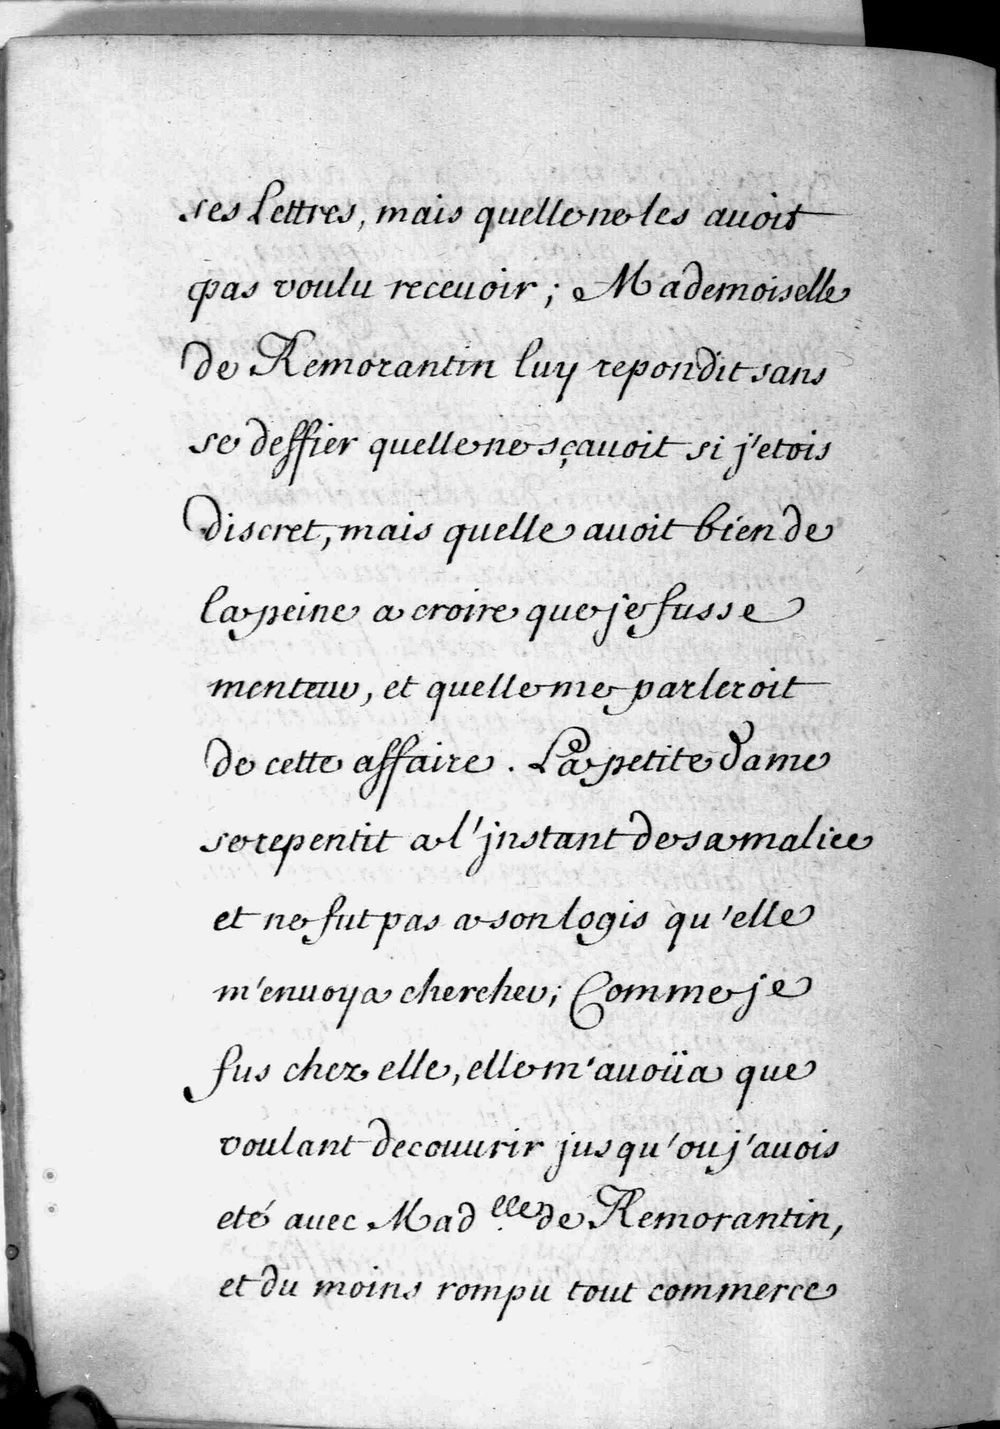 ses Lettres, mais quelle ne les avoit
pas voulu recevoir ; Mademoiselle
de Remorantin luy repondit sans
se deffier quelle ne sçavoit si j'etois
discret, mais quelle avoit bien de
la peine a croire que je fusse
menteur, et quelle me parleroit
de cette affaire . La petite dame
se repentit a l'jnstant de sa malice
et ne fut pas a son logis qu'elle
m'envoya chercher ; Comme je
fus chez elle, elle m'avoüa que
voulant decouvrir jusqu'ou j'avois
eté avec Mad.elle de Remorantin,
et du moins rompu tout commerce